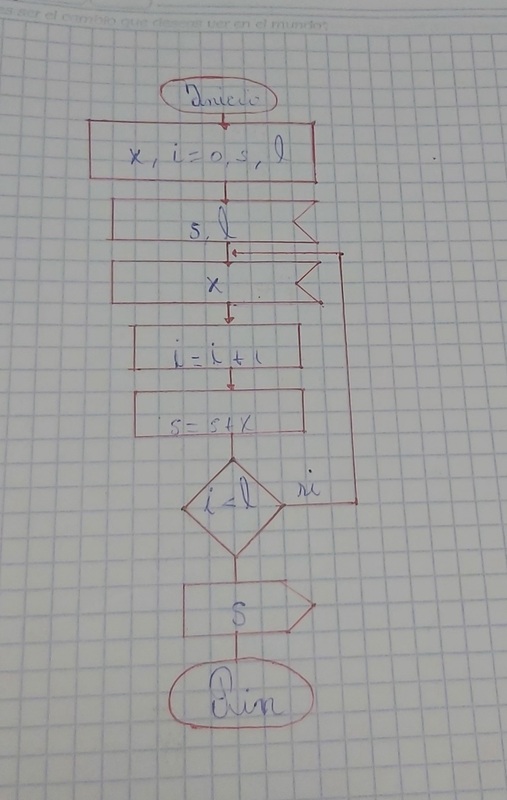 es ser el cambio que deseas ver en el mundo"
Inicio
x, i=0, s, l
s, l
x
i=i+1
s=s+x
i<l
si
S
Fin